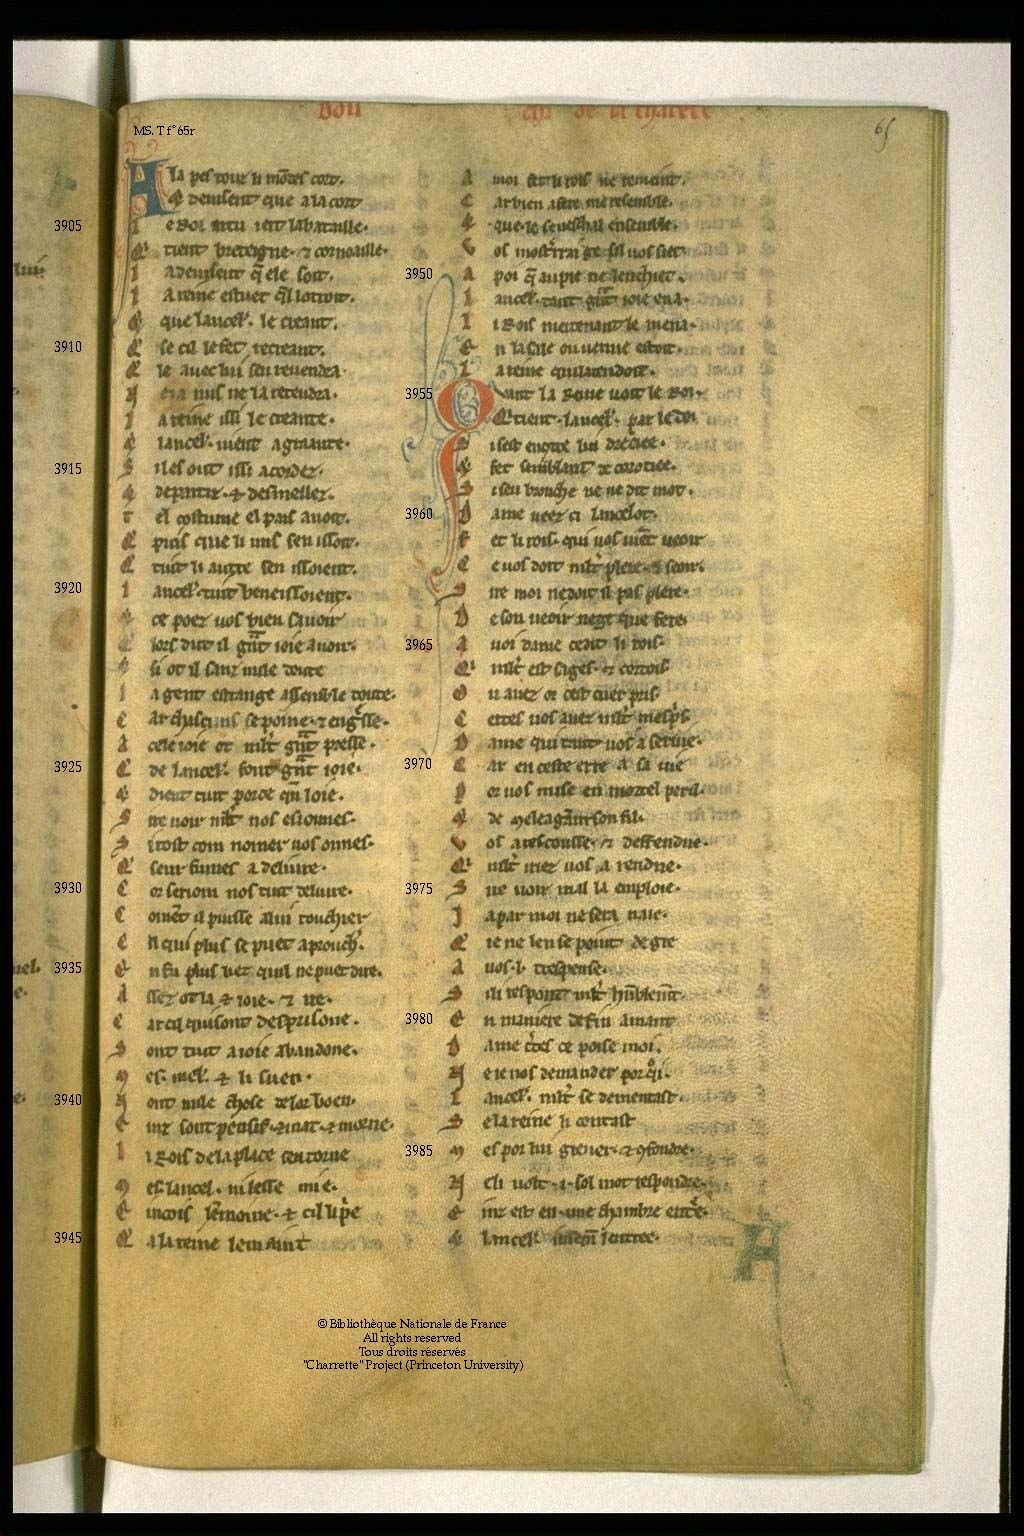 MS. T f° 65r
65
A la pes touz li mōdes cort.
Et deuisent que a la cort
3905 l e Roi artu iert la bataille.
Q' tient bretaigne. & cornoaille.
l a deuisent q̄ ele soit.
l a reine estuet q̄l lotroit.
& que lancel'. le creant.
3910 Q' se cil le fet recreant.
Q' le auec lui sen reuendra.
N eia nus ne la retendra.
l a reine issi le creante.
& lancel'. uient a greante.
3915 S i les ont issi acordez.
& departiz. & desmellez.
T el costume el pais auoit.
Q puis que li uns sen issoit.
Q tuit li autre sen issoient.
3920 l ancel'. tuit beneissoient.
& ce poez uos bien sauoir
Q lors dut il gn̄t ioie auoir.
& si ot il sanz nule doute
l a gent estrange assenble toute.
C ar chascuns se poine. & engr̄sse.
A cele ioie ot ml't gn̄t presse.
3925 Q de lancel'. font gn̄t ioie.
& dient tuit por ce qn̄ loie.
S ire uoir ml't nos esioimes.
S i tost com nomer uos oimes.
Q seur fumes a deliure.
3930 C or serions nos tuit deliure.
C omēt il puisse a lui touchier
C il qui plus se puet aprouch'.
3935 & n fu plus liez quil ne puet dire.
A ssez ot la & ioie. & ire.
C ar cil qui sont desprisone.
S ont tuit a ioie abandone.
M es. mel'. & li suen.
3940 N ont nule chose de lor boen.
E inz sont pensif. & mat. & morne.
l i Rois de la place sen torne
M es lancel. ni lesse mie.
E incois lēmoine. & cil li p̄e
3945 Q a la reine le maint
A moi fet li rois ne remeint.
C ar bien a fere me resenble.
& que le seneschal ensenble.
V os mosterrai ge sil uos siet.
3950 A poi q̄ au pie ne len chiet.
l ancel'. tant gn̄t ioie en a.
l i Rois meitenant le mena.
E n la sale ou uenue estoit.
l a reine qui latendoit.
3955 Quant la Reine uoit le Roi.
Q' tient. lancel'. par le doi.
S i sest contre lui dreciee.
& fet senblant de corociee.
S i senbronche ne ne dit mot.
3960 D ame ueez ci lancelot.
F et li rois. qui uos uiēt ueoir
C e uos doit ml't plere. & seoir.
S ire moi ne doit il pas plere.
D e son ueoir nege que fere.
3965 A uoi dame ce dit li rois.
Q' ml't est sages. & cortois.
O u auez or cest cuer pris.
C ertes uos auez ml't mesp̄s.
D ame qui tant uos a seruie.
3970 C ar en ceste erre a sa uie
P or uos mise en mortel peril.
& de meleagant son fil.
V os a rescousse. & deffendue.
Q' ml't iriez uos a rendue.
3975 S ire uoir mal la emploie.
J a par moi ne sera naie.
Q ie ne len se point de gre
A uos .l. trespense.
S ili respont ml't hūblemēt.
3980 E n maniere de fin amant
D ame ctes ce poise moi.
N e ie nos demander por qoi.
l ancel'. ml't se dementast.
S e la reine li contast
3985 M es por lui greuer. & 9fondre.
N eli uolt .i. sol mot respondre.
E inz est en une chambre entr̄e.
& lancel'. lentree.
© Bibliothèque Nationale de France
All rights reserved
Tous droits réservés
"Charrette" Project (Princeton University)